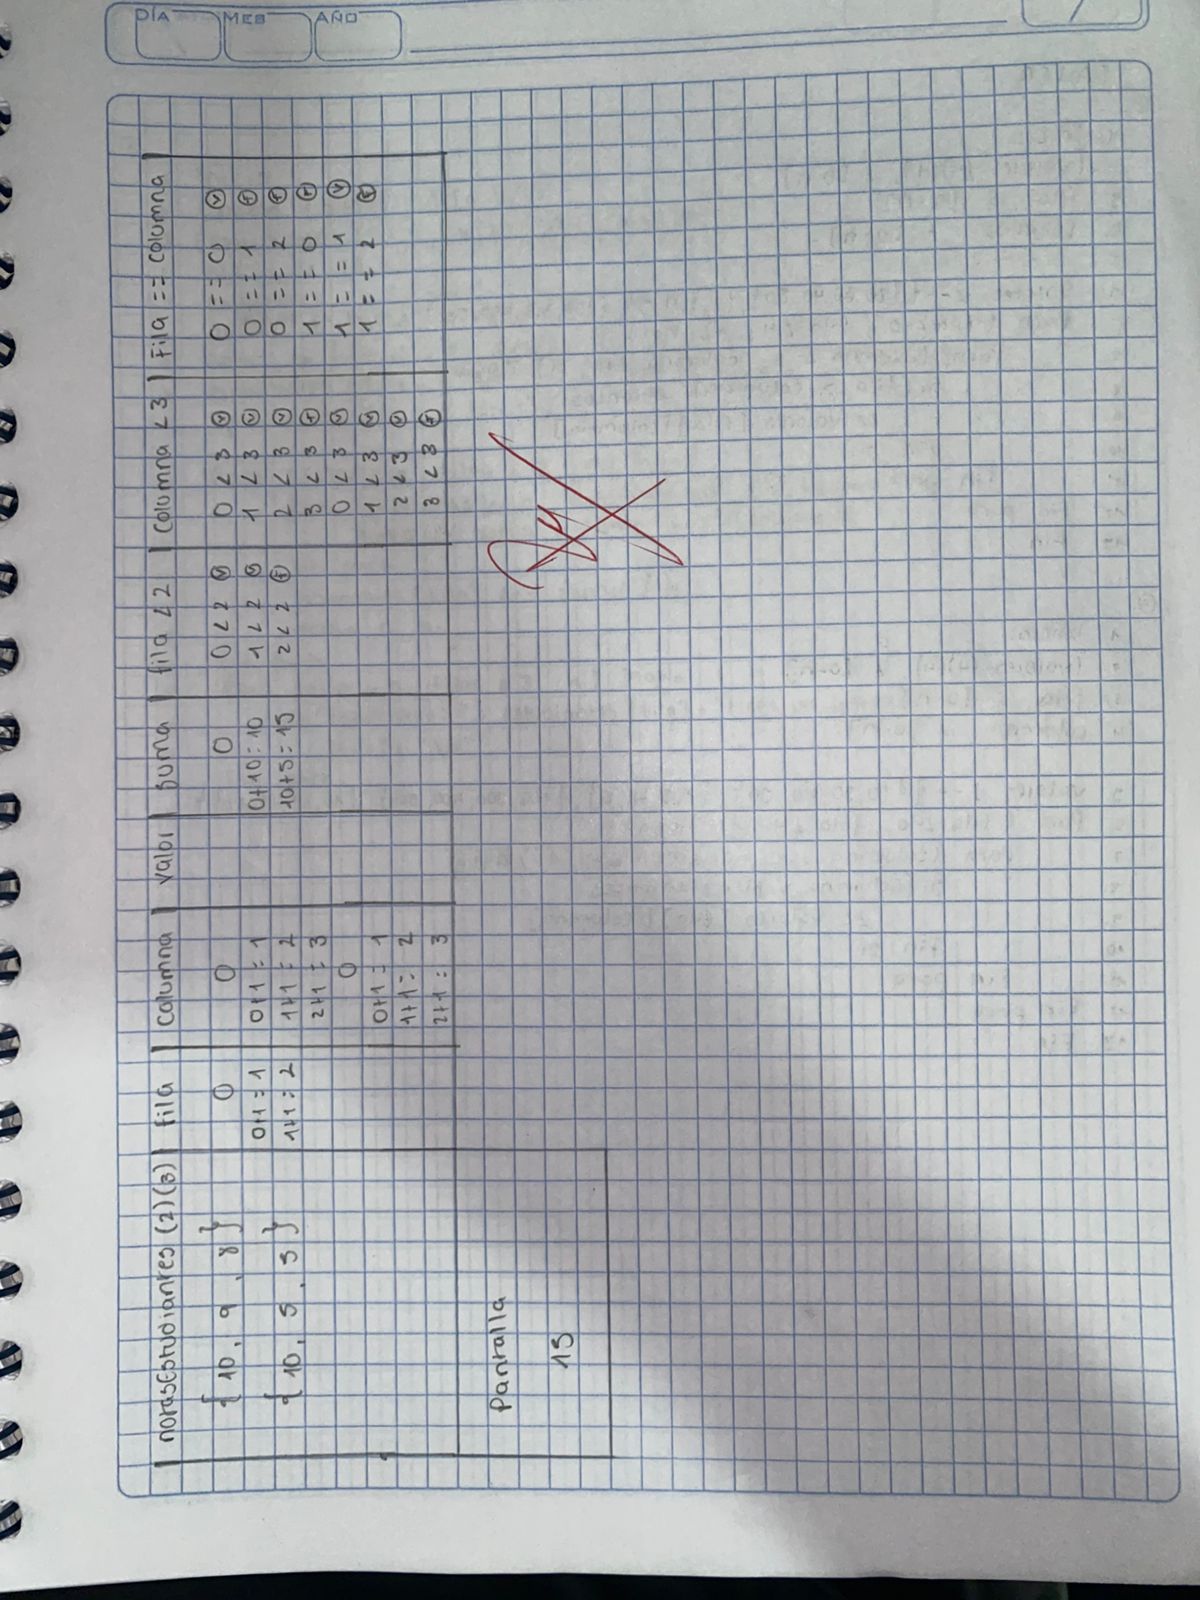 DÍA MES AÑO
notasEstudiantes (2)(3) | fila | Columna | Valor | Suma | fila < 2 | Columna < 3 | Fila == Columna
{ 10, 9, 8 } 0 0 0 0 < 2 V 0 < 3 V 0 == 0 V
0+1 = 1 0+1 = 1 0+10 = 10 1 < 2 V 1 < 3 V 0 == 1 F
{ 10, 5, 5 } 1+1 = 2 1+1 = 2 10+5 = 15 2 < 2 F 2 < 3 V 0 == 2 F
2+1 = 3 3 < 3 F 1 == 0 F
0 0 < 3 V 1 == 1 V
0+1 = 1 1 < 3 V 1 == 2 F
1+1 = 2 2 < 3 V
2+1 = 3 3 < 3 F
Pantalla
15